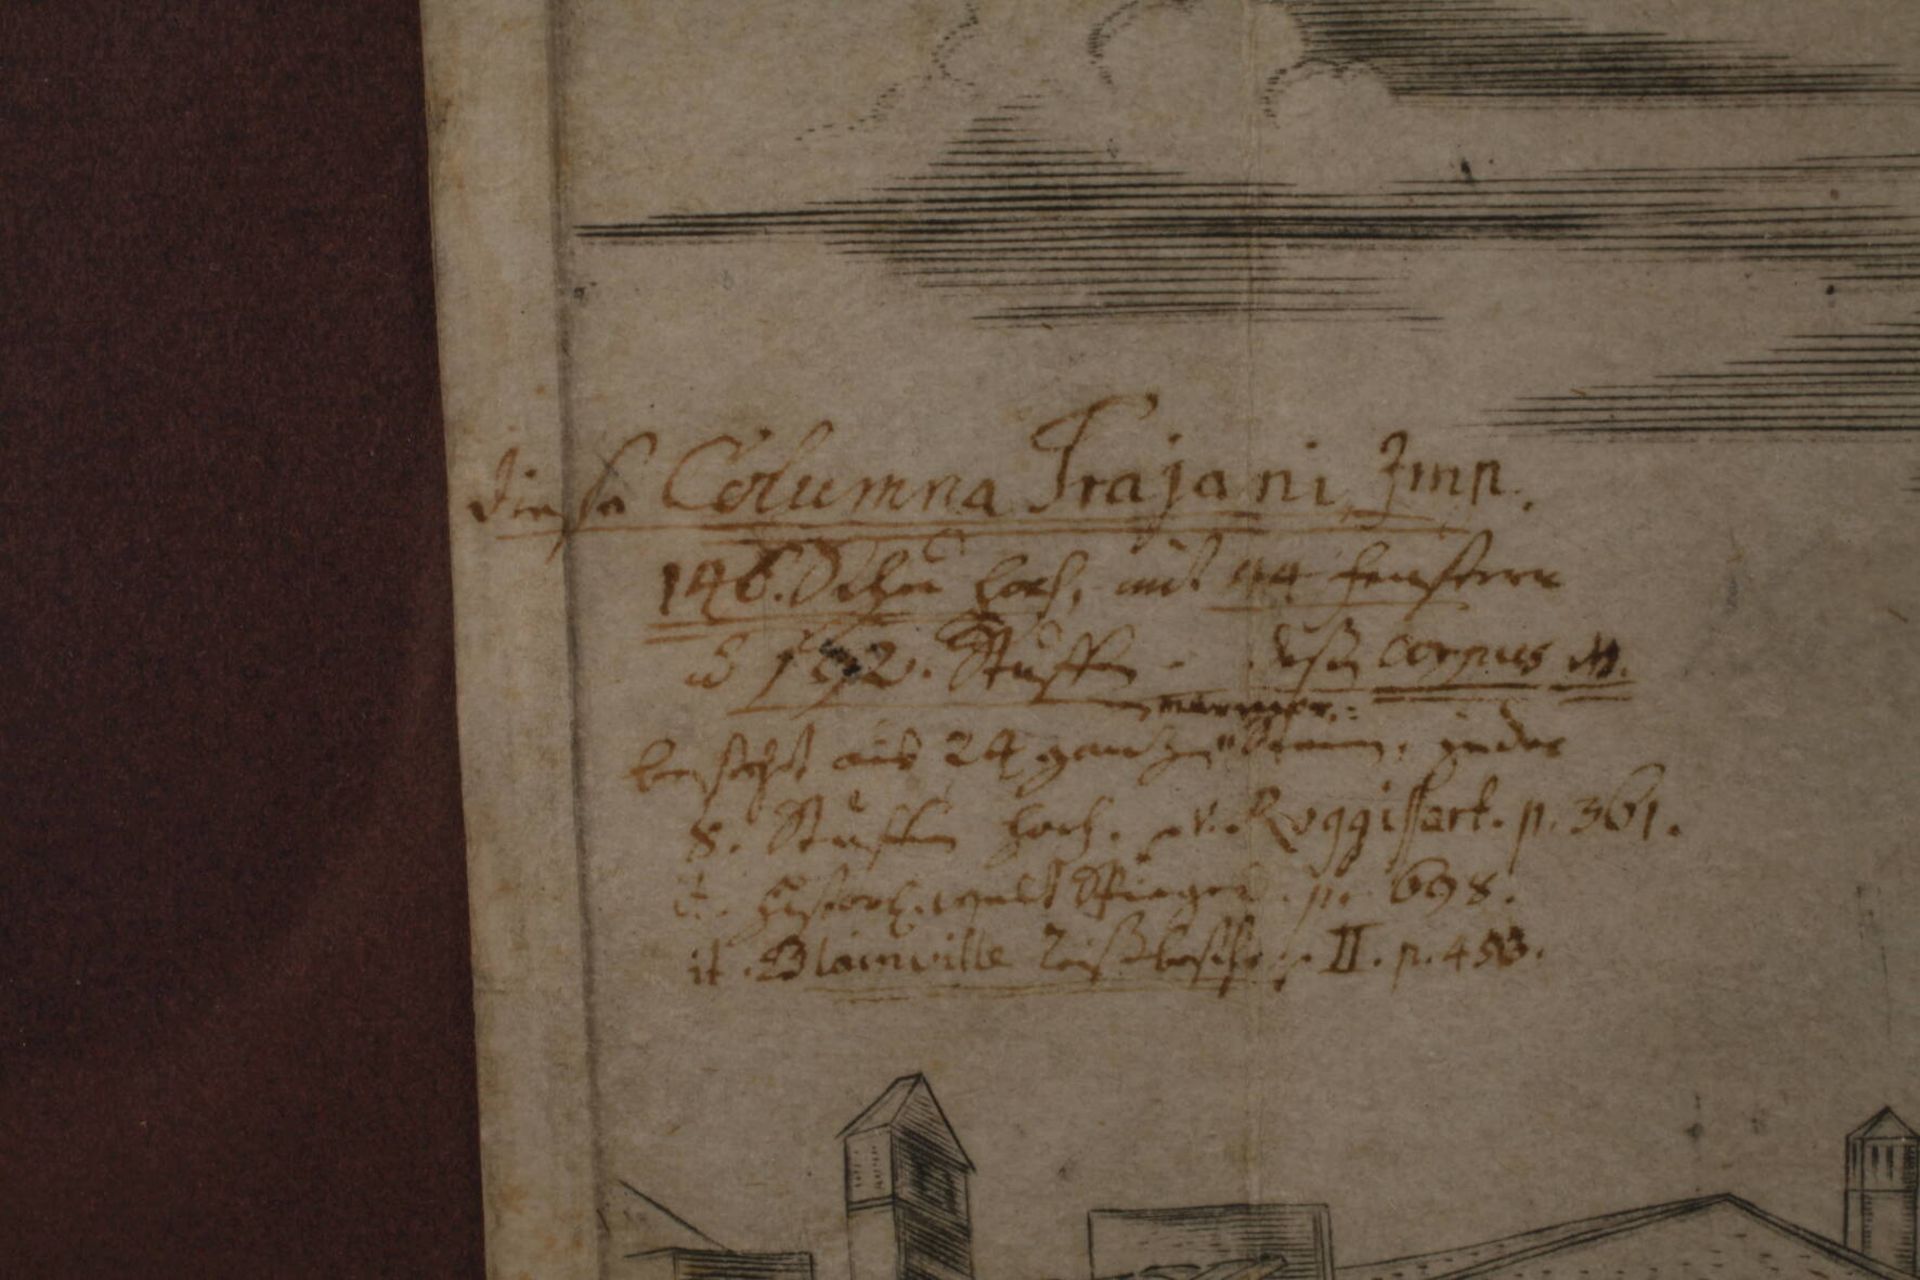 diese Columna Trajani Imp.
146. Schu hoch, mit 44 fenstern
u 192. Stuffen. deßen corpus
marmor.:
bestehet aus 24 gantzen Steinen, jeder
8. Stuffen hoch. v. Roggissart. p. 361.
Historh. welt Spiegel. p. 698.
it. Blainville Reißbeschr. II. p. 453.